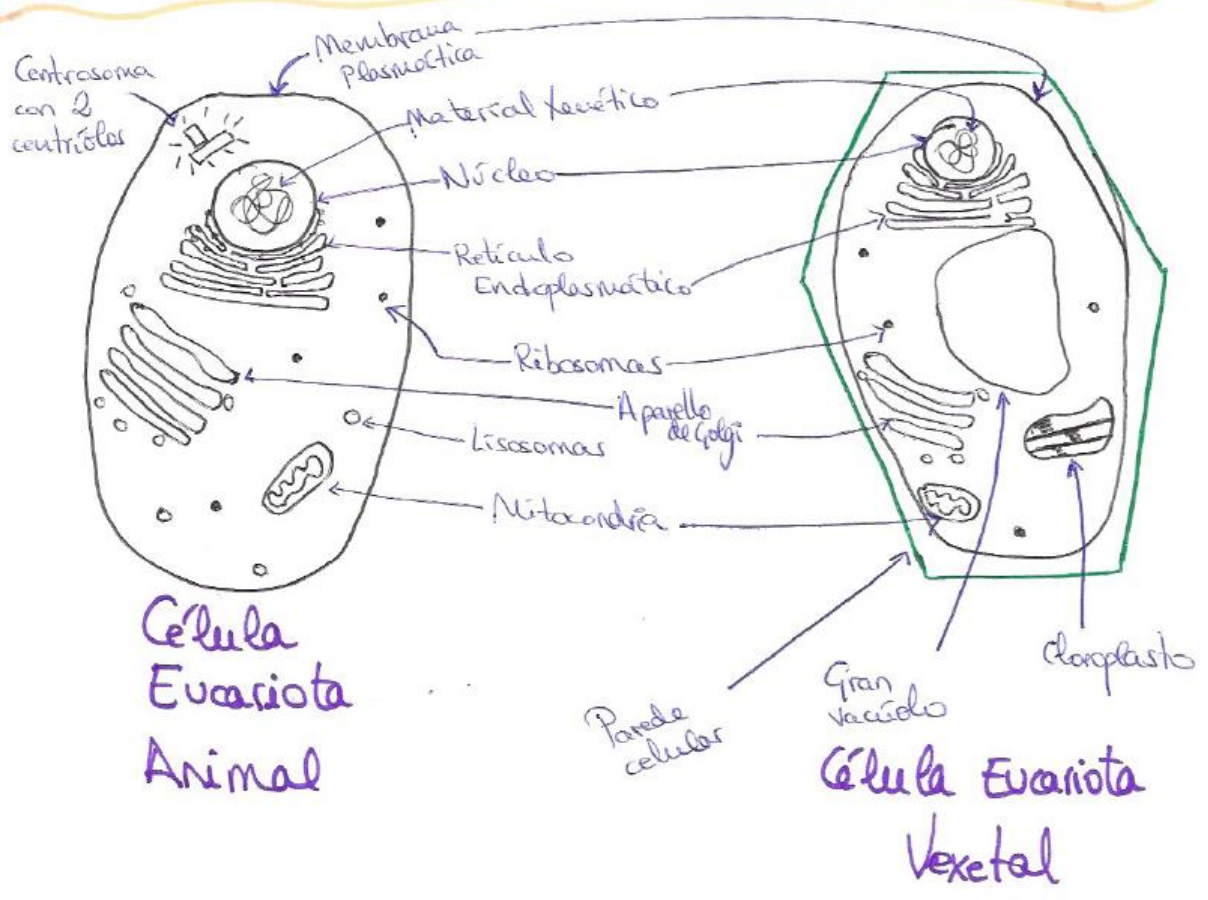 Centrosoma
con 2
centríolos
Membrana
Plasmática
Material Xenético
Núcleo
Retículo
Endoplasmático
Ribosomas
Aparello
de Golgi
Lisosomas
Mitocondria
Célula
Eucariota
Animal
Parede
celular
Gran
vacúolo
Cloroplasto
Célula Eucariota
Vexetal